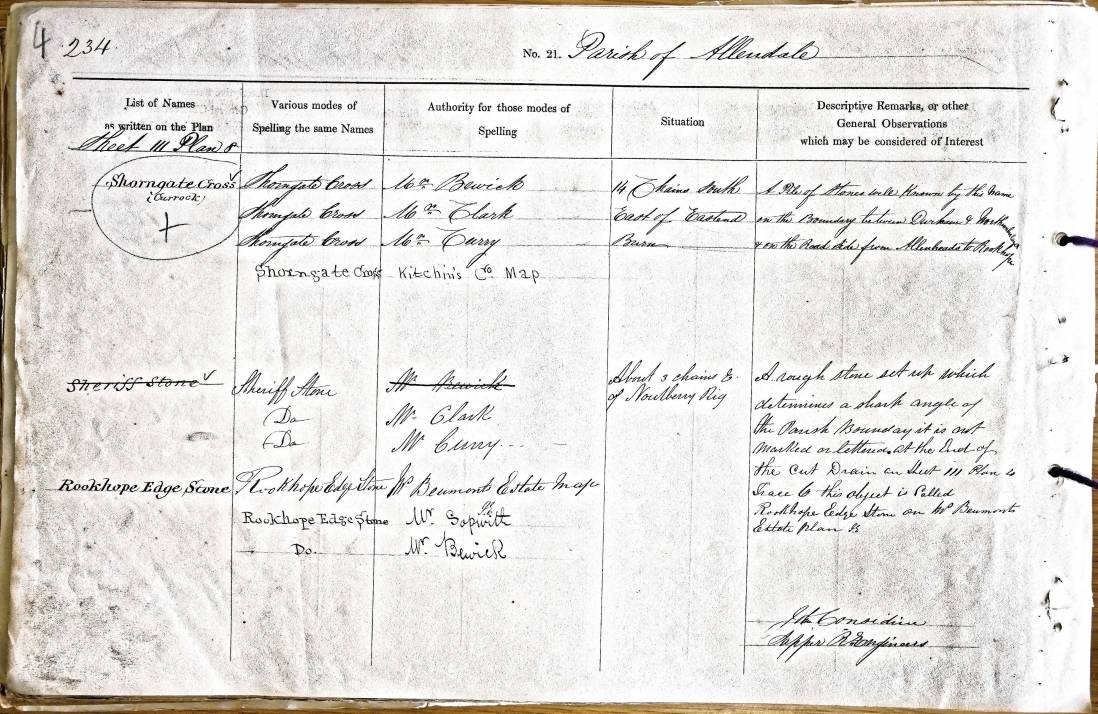 4 234
No. 21. Parish of Allendale
List of Names as written on the Plan
Various modes of Spelling the same Names
Authority for those modes of Spelling
Situation
Descriptive Remarks, or other General Observations which may be considered of Interest
Sheet 111 Plan 8
Shorngate Cross Shorngate Cross Mr. Bewick 14 Chains South A Pile of Stones well Known by this name
(Currock) Shorngate Cross Mr. Clark East of Eastend on the Boundary between Durham &
+ Shorngate Cross Mr. Curry Burn & on the Road side from Allenheads to Rookhope
Shorngate Cross Kitchin's Co. Map
Sheriff Stone Sheriff Stone Mr Bewick About 3 chains E. A rough stone set up which
Do Mr Clark of Nowlberry Rig determines a shark angle of
Do Mr Curry the Parish Bounday it is not
marked or lettered, at the End of
the Cut Drain on Sheet 111 Plan 4
Rookhope Edge Stone Rookhope Edge Stone Mr Beumonts Estate Map Trace 6 this object is Called
Rookhope Edge Stone Mr. Sopwith Rookhope Edge Stone on Mr Beumonts
Do. Mr. Bewick Estate Plan
Considine
Sapper R Engineers